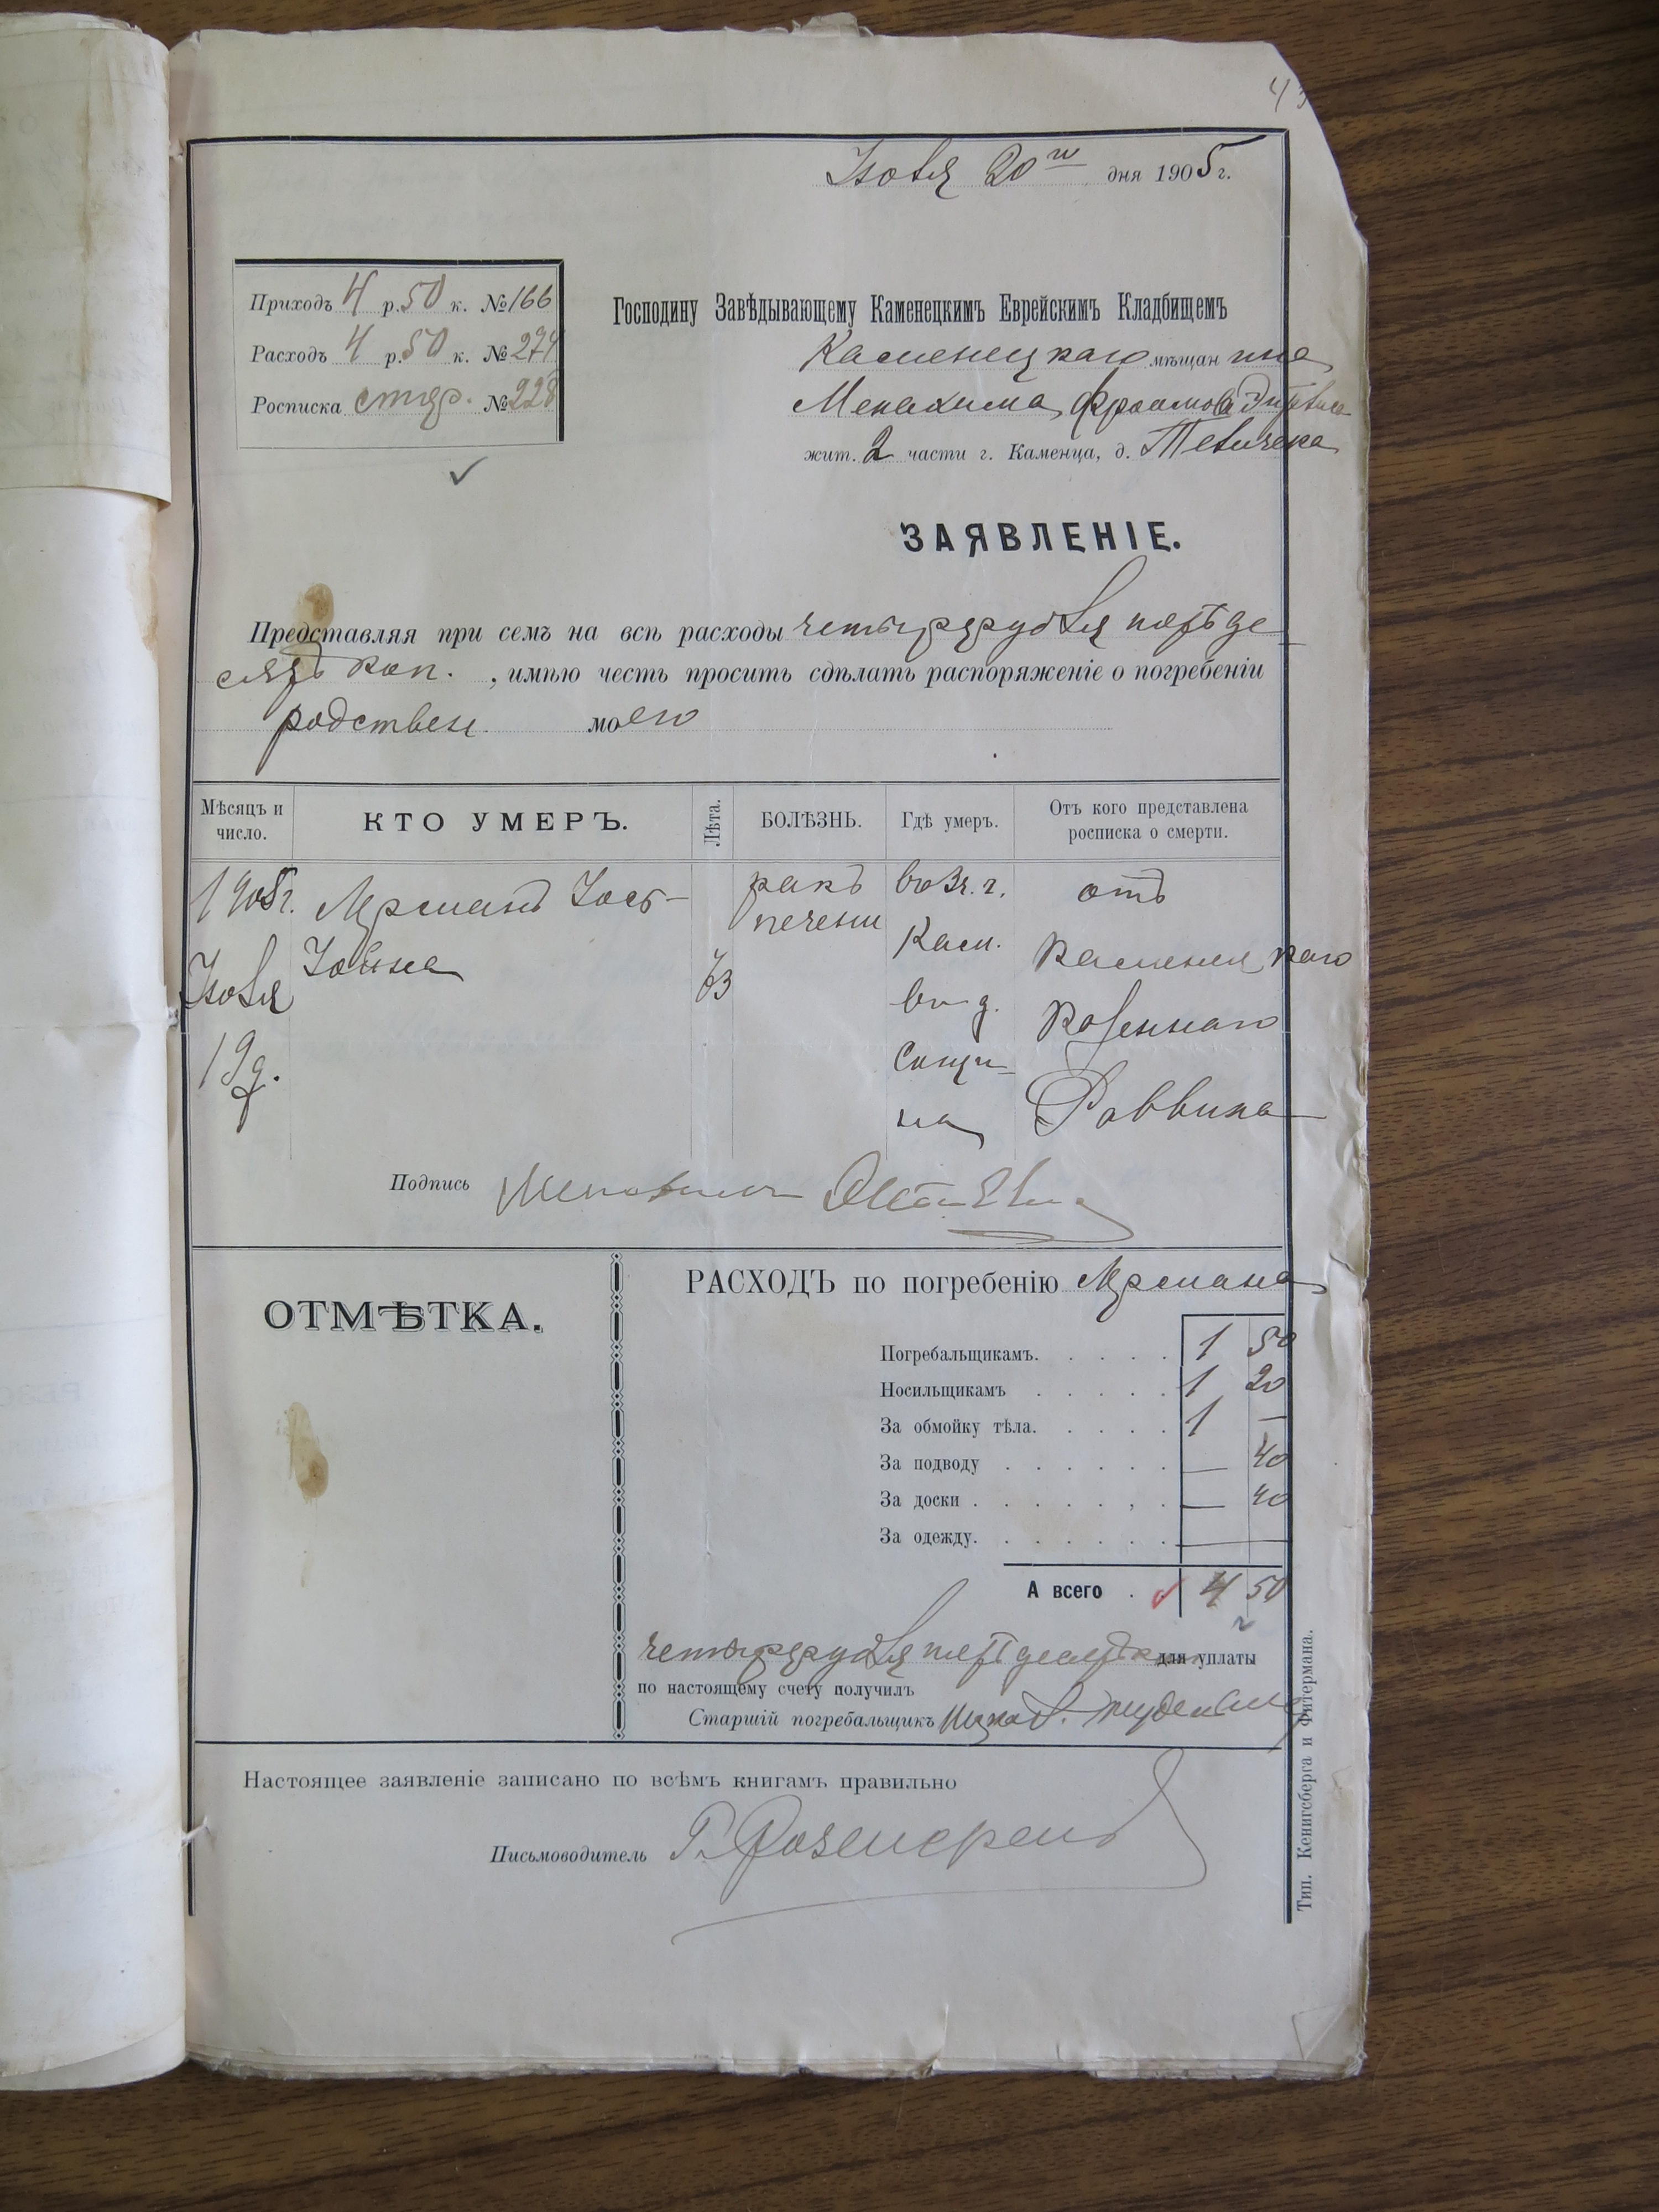 43
Іюля 20го дня 1905 г.
Приходъ 4 р. 50 к. № 166
Расходъ 4 р. 50 к. № 274
Росписка стар. № 228
Господину Завѣдывающему Каменецкимъ Еврейскимъ Кладбищемъ
Каменецкаго мѣщанина
Менахима
жит. 2 части г. Каменца, д.
ЗАЯВЛЕНІЕ.
Представляя при семъ на всѣ расходы четыре рубля пятьде
сятъ коп. , имѣю честь просить сдѣлать распоряженіе о погребеніи
родствен моего
Мѣсяцъ и число. КТО УМЕРЪ. Лѣта. БОЛѢЗНЬ. Гдѣ умеръ. Отъ кого представлена росписка о смерти.
1905 г. ракъ во 2 ч. г. отъ
печени Кам. Каменецкаго
Іюля 63 въ д. Казеннаго
19 д. Раввина
Подпись
ОТМѢТКА.
РАСХОДЪ по погребенію
Погребальщикамъ. 1 50
Носильщикамъ 1 20
За обмойку тѣла. 1 —
За подводу — 40
За доски — 40
За одежду. —
А всего 4 50
четыре рубля пятьдесятъ коп для уплаты
по настоящему счету получилъ
Старшій погребальщикъ
Настоящее заявленіе записано по всѣмъ книгамъ правильно
Письмоводитель
Тип. Кенигсберга и Фитермана.